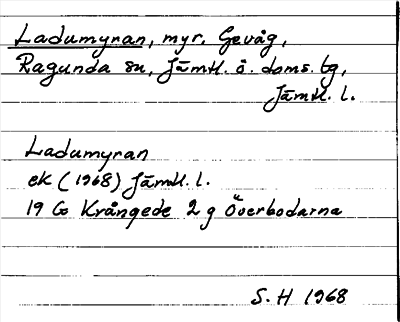 Ladumyran, myr, Gevåg,
Ragunda sn, Jämtl. ö. doms. tg,
Jämtl. l.
Ladumyran
ek (1968) Jämtl. l.
19 G Krångede 2 g Överbodarna
S. H 1968